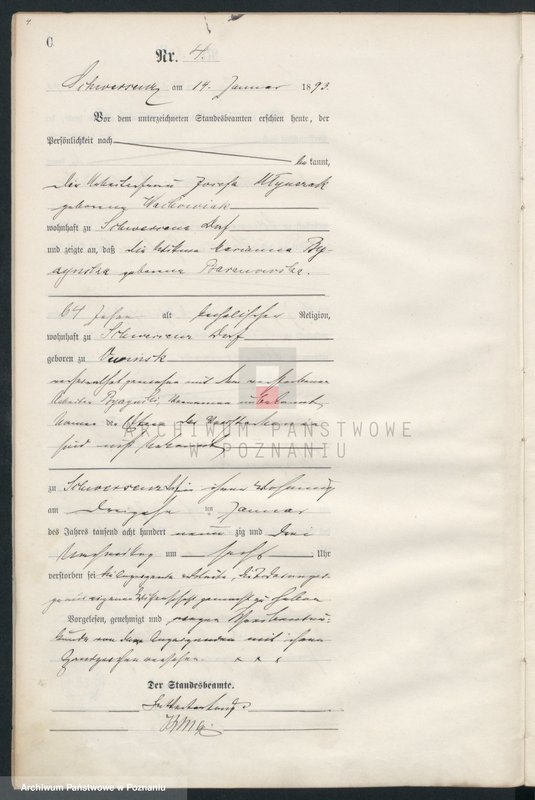 4.
C
Nr. 4.
Schwersenz am 14. Januar 1893.
Vor dem unterzeichneten Standesbeamten erschien heute, der
Persönlichkeit nach
be kannt,
die Arbeiterfrau Josefa Mlynczak
geborene Wachowiak
wohnhaft zu Schwersenz Dorf
und zeigte an, daß die Wittwe Marianna
geborene Baranowska.
64 Jahre alt katholischer Religion,
wohnhaft zu Schwersenz Dorf
geboren zu Owinsk
verheirathet gewesen mit dem verstorbenen
Arbeiter Vorname unbekannt
Namen der Eltern der Verstorbenen
sind nicht bekannt
ARCHIWUM PAŃSTWOWE
W POZNANIU
zu Schwersenz Dorf in ihrer Wohnung
am dreizehn ten Januar
des Jahres tausend acht hundert neun zig und drei
Nachmittag um sechs Uhr
verstorben sei
aus eigener Wissenschaft gemacht zu haben
Vorgelesen, genehmigt und wegen Schreibensun-
kunde von der Anzeigenden mit ihrem
Handzeichen versehen. x x x
Der Standesbeamte.
Archiwum Państwowe w Poznaniu